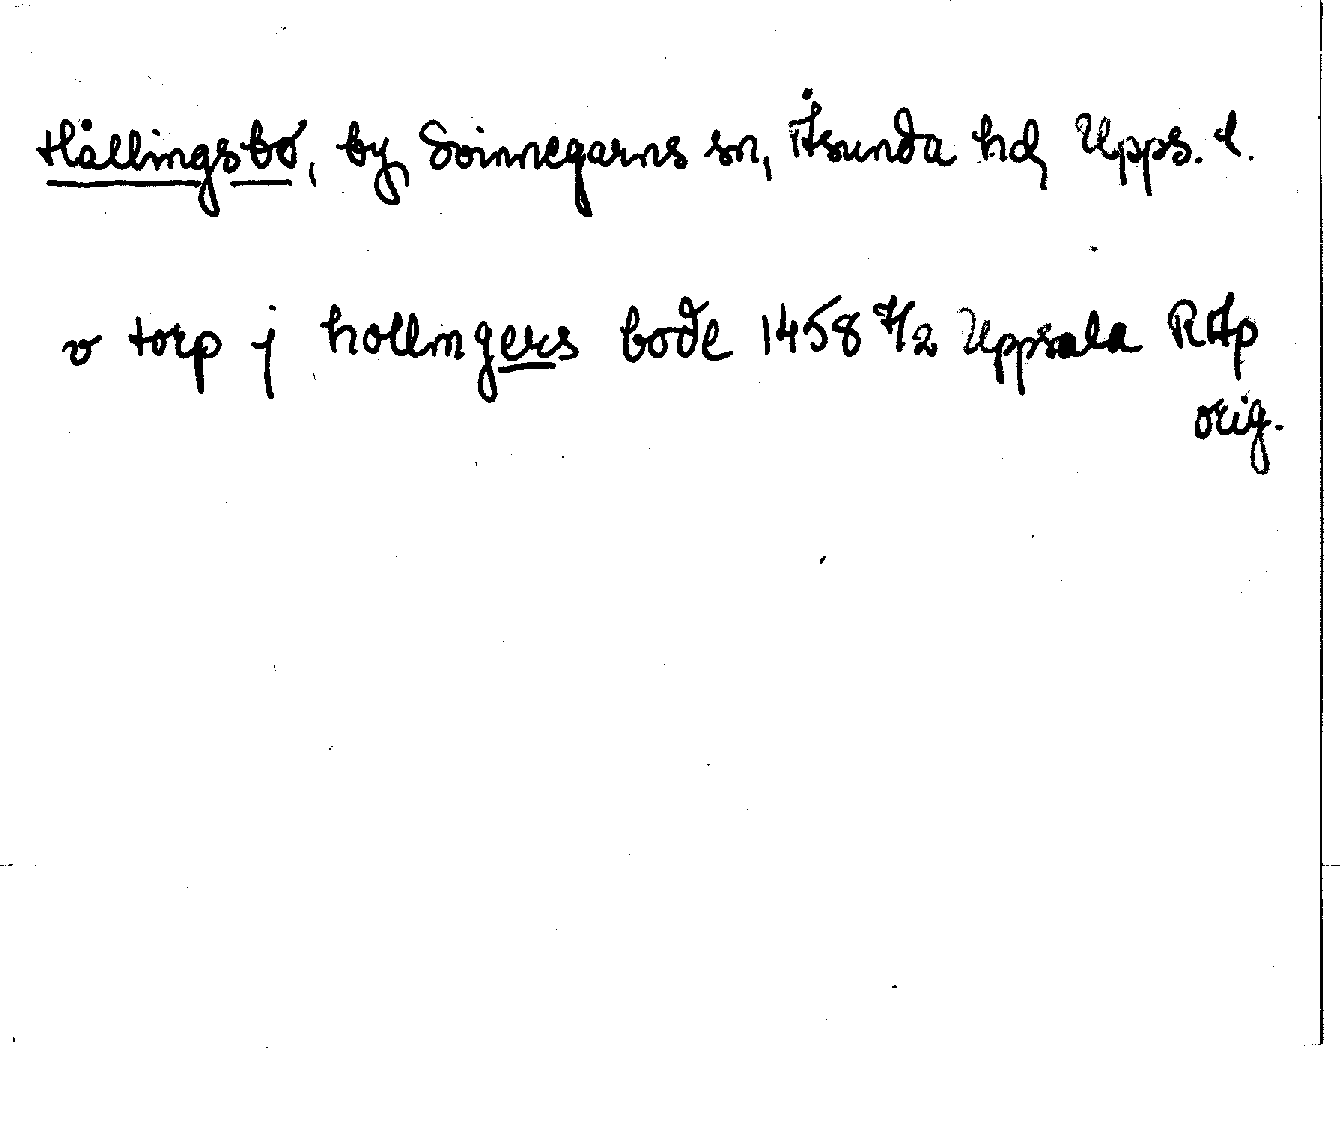 Hållingsbo, by, Svinnegarns sn, Åsunda hd, Upps. l.
v torp j hollingers bode 1458 7/2 Uppsala RAp
orig.